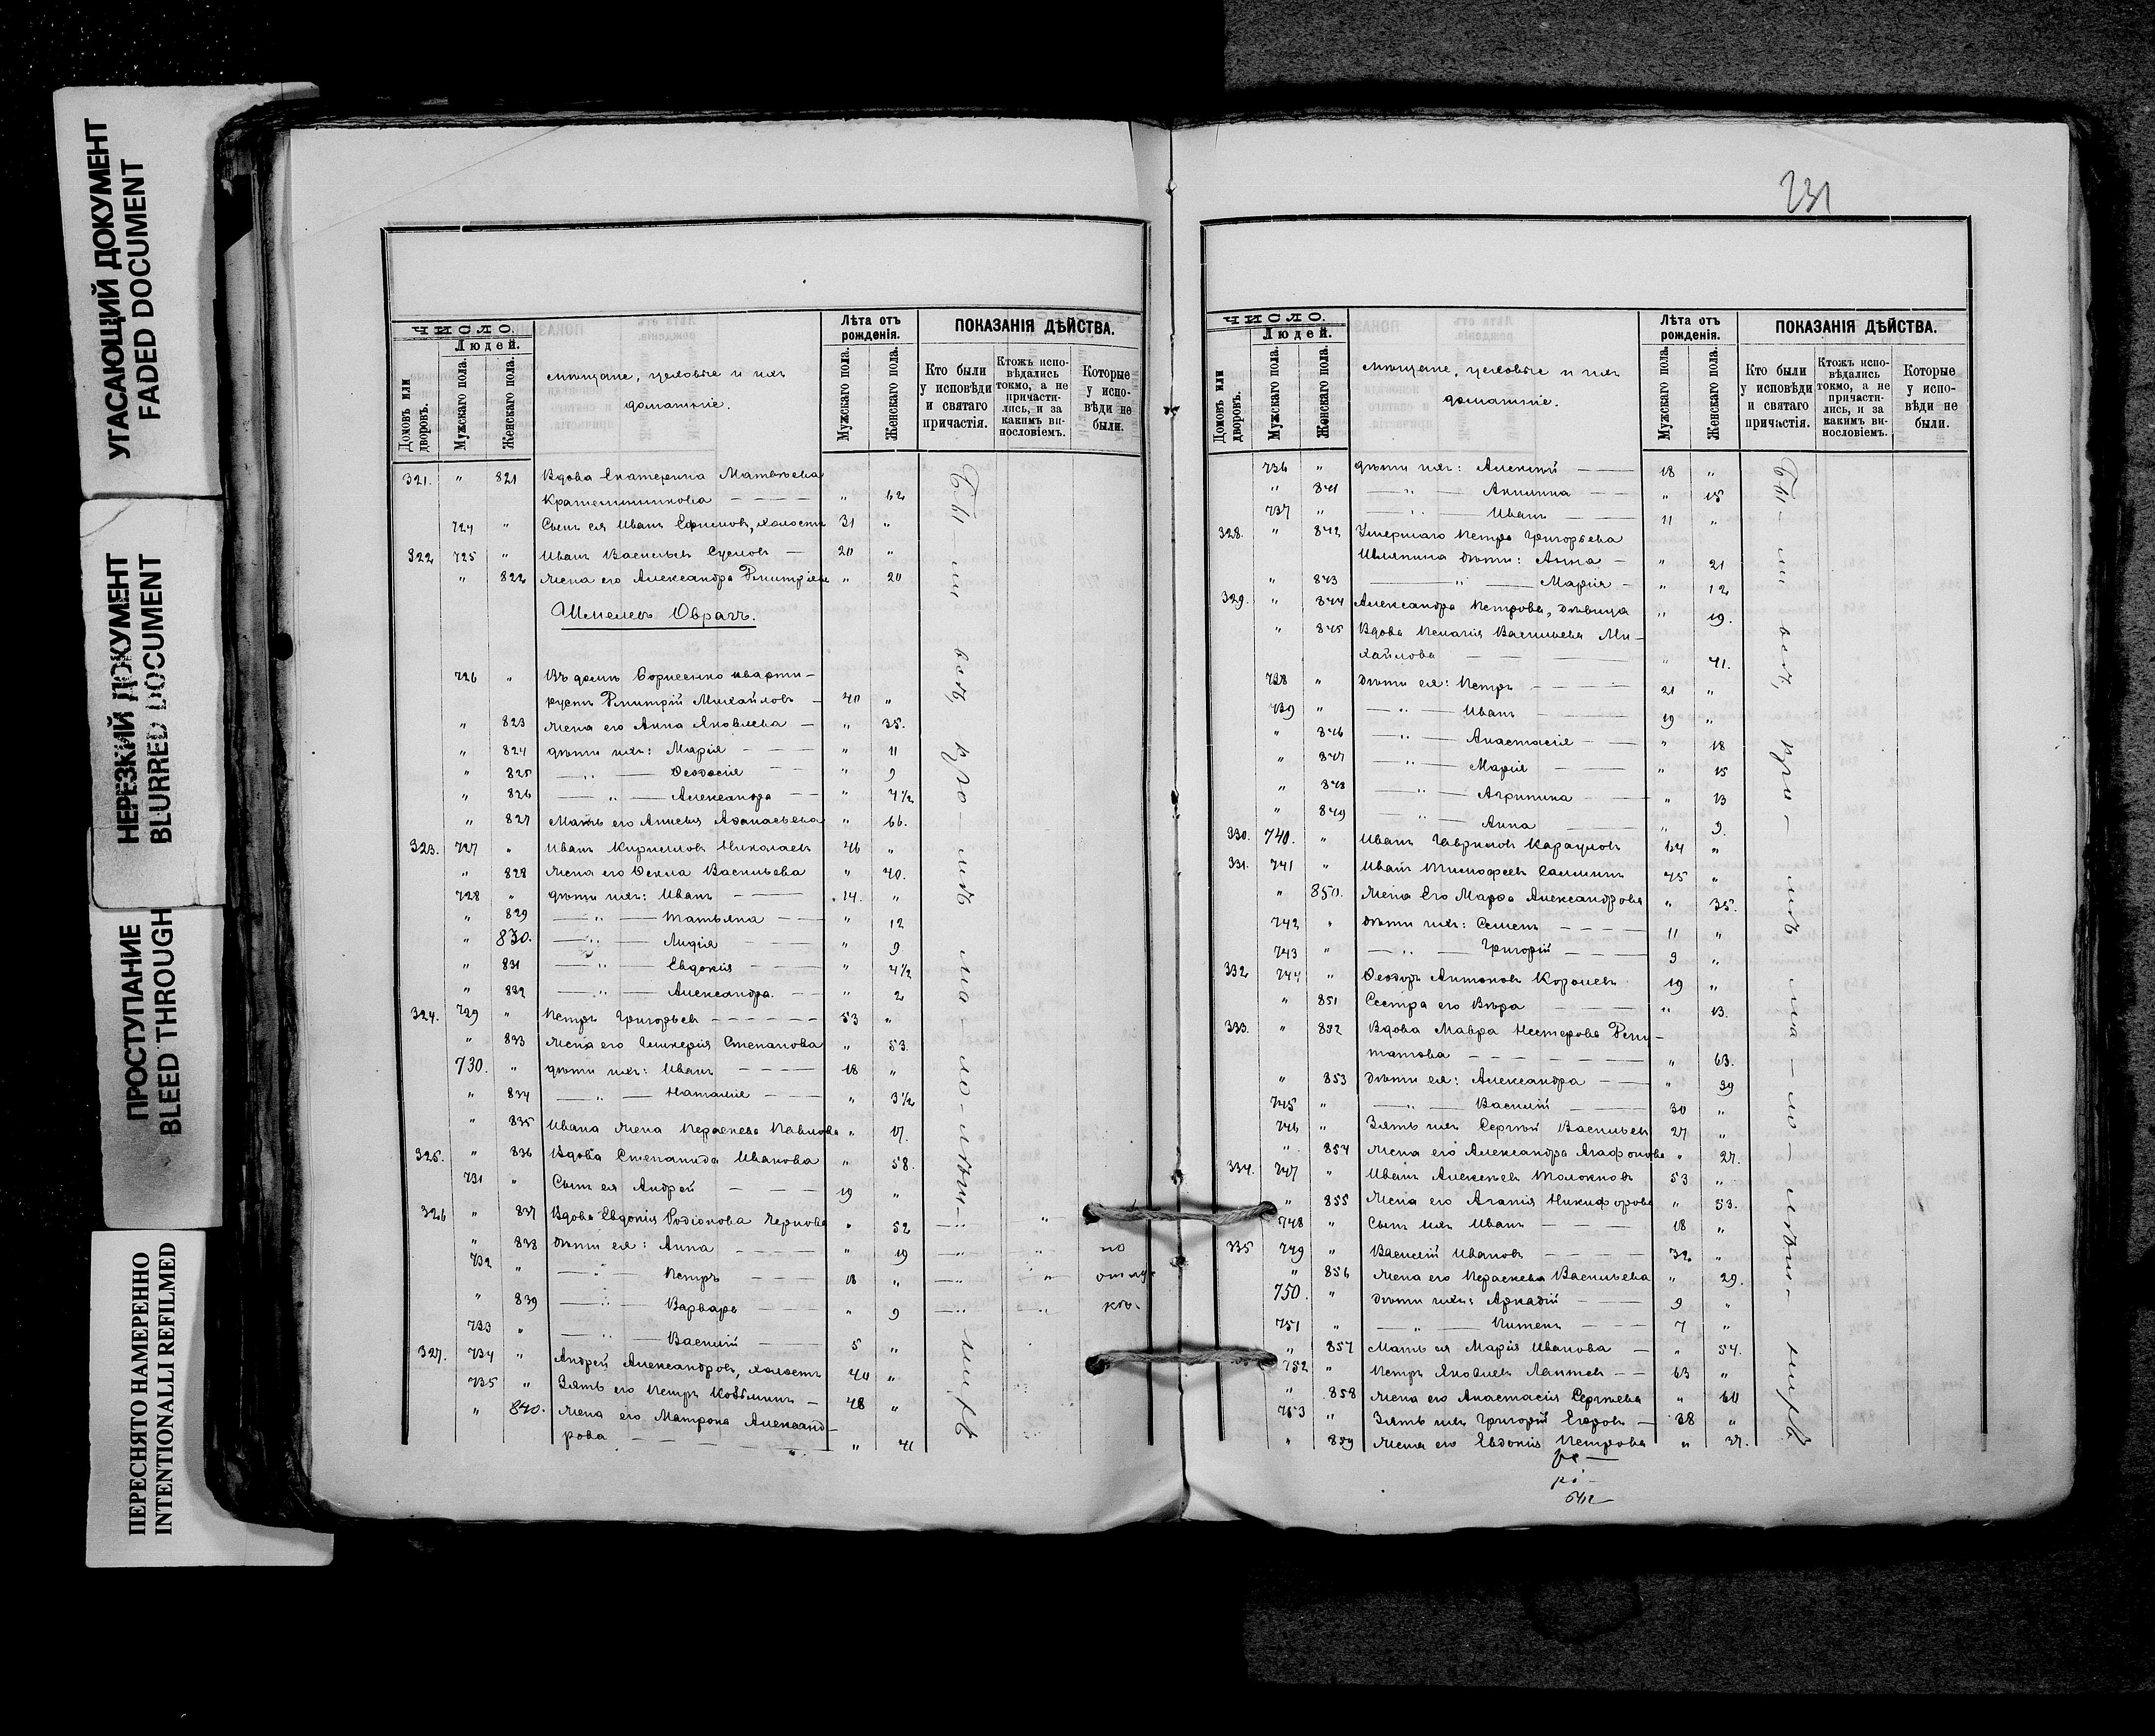 УГАСАЮЩИЙ ДОКУМЕНТ
FADED DOCUMENT
НЕРЕЗКИЙ ДОКУМЕНТ
BLURRED DOCUMENT
ПРОСТУПАНИЕ
BLEED THROUGH
ПЕРЕСНЯТО НАМЕРЕННО
INTENTIONALLI REFILMED
ЧИСЛО.
Людей.
Домовъ или дворовъ.
Мужскаго пола.
Женскаго пола.
мѣщане, цеховые и ихъ
домашніе.
Лѣта отъ рожденія.
Мужскаго пола.
Женскаго пола.
ПОКАЗАНІЯ ДѢЙСТВА.
Кто были у исповѣди и святаго причастія.
Ктожъ исповѣдались токмо, а не причастились, и за какимъ винословіемъ.
Которые у исповѣди не были.
321. " 821 Вдова Екатерина Матвѣева
Крашенинникова — " 62
724 " Сынъ ея Иванъ Ефимовъ, холостъ 31 "
322 725 " Иванъ Васильевъ Сусловъ — 20 "
" 822 Жена его Александра Дмитріева " 20
Шмелевъ Оврагъ.
726 " Въ домѣ Борисенко кварти-
руетъ Дмитрій Михайловъ — 40 "
" 823 Жена его Анна Яковлева — " 35.
" 824 дѣти ихъ: Марія — " 11
" 825 — " — Ѳеодосія — " 9
" 826 — " — Александра — " 4½
" 827 Мать его Анисія Аѳанасьева " 66.
323. 727 " Иванъ Кириллов Николаевъ 46 "
" 828 Жена его Ѳекла Васильева " 40.
728 " дѣти ихъ: Иванъ — 14. "
" 829 — " — Татьяна — " 12
" 830. — " — Лидія — " 9
" 831 — " — Евдокія — " 4½
" 832 — " — Александра. — " 2
324. 729 " Петръ Григорьевъ — 53 "
" 833 Жена его Гликерія Степанова " 53.
730. " дѣти ихъ: Иванъ — 18 "
" 834 — " — Наталія — " 3½
" 835 Ивана жена Параскева Павлова " 17.
325. " 836 Вдова Степанида Иванова " 58.
731 " Сынъ ея Андрей — 19 "
326 " 837 Вдова Евдокія Родіонова Чернова " 52
" 838 Дѣти ея: Анна — " 19 по
732 " — " — Петръ — 18 " отлуч
" 839 — " — Варвара — " 9 кѣ.
733 " — " — Василій — 5 "
327. 734 " Андрей Александровъ, холостъ 44 "
735 " Зять его Петръ — 48 "
" 840. Жена его Матрона Александ-
рова — " 41
Бы — ли всѣ, кро — мѣ ма — ло — лѣтн: нихъ
231
ЧИСЛО.
Людей.
Домовъ или дворовъ.
Мужскаго пола.
Женскаго пола.
мѣщане, цеховые и ихъ
домашніе.
Лѣта отъ рожденія.
Мужскаго пола.
Женскаго пола.
ПОКАЗАНІЯ ДѢЙСТВА.
Кто были у исповѣди и святаго причастія.
Ктожъ исповѣдались токмо, а не причастились, и за какимъ винословіемъ.
Которые у исповѣди не были.
736 " дѣти ихъ: Алексѣй — 18 "
" 841 — " — Акилина — " 15
737 " — " — Иванъ — 11 "
328. " 842 Умершаго Петра Григорьева
дѣти: Анна — " 21
" 843 — " — Марія — " 12
329. " 844 Александра Петрова, дѣвица " 19.
" 845 Вдова Пелагія Васильева Ми-
хайлова — " 41.
738 " Дѣти ея: Петръ — 21 "
739 " — " — Иванъ — 19 "
" 846 — " — Анастасія — " 18
" 847 — " — Марія — " 15
" 848 — " — Агрипина — " 13
" 849 — " — Анна — " 9.
330. 740. " Иванъ Гавриловъ Карауловъ 64 "
331. 741 " Иванъ Тимофеевъ Салминъ 45 "
" 850. Жена Его Марѳа Александрова " 35.
742 " Дѣти ихъ: Семенъ — 11 "
743 " — " — Григорій — 9 "
332 744 " Ѳеодоръ Антоновъ Королевъ 19 "
" 851 Сестра его Вѣра — " 13.
333. " 852 Вдова Мавра Нестерова
— " 63.
" 853 Дѣти ея: Александра — " 39
745 " — " — Василій — 30 "
746 " Зять ихъ Сергѣй Васильевъ 27 "
" 854 Жена его Александра Агафонова " 27.
334. 747 " Иванъ Алексѣевъ Толокновъ 53 "
" 855 Жена его Агапія Никифорова " 53.
748 " Сынъ ихъ Иванъ — 18 "
335 749 " Василій Ивановъ — 32 "
" 856 Жена его Параскева Васильева " 29.
750. " Дѣти ихъ: Аркадій — 9 "
751 " — " — Пименъ — 7 "
" 857 Мать ея Марія Иванова — " 54.
752 " Петръ Яковлевъ Лаптевъ — 63 "
" 858 Жена его Анастасія Сергѣева " 60
753 " Зять ихъ Григорій Егоровъ — 38 "
" 859 Жена его Евдокія Петрова " 37.
Бы — ли всѣ, кро — мѣ ма — ло — лѣтн: нихъ